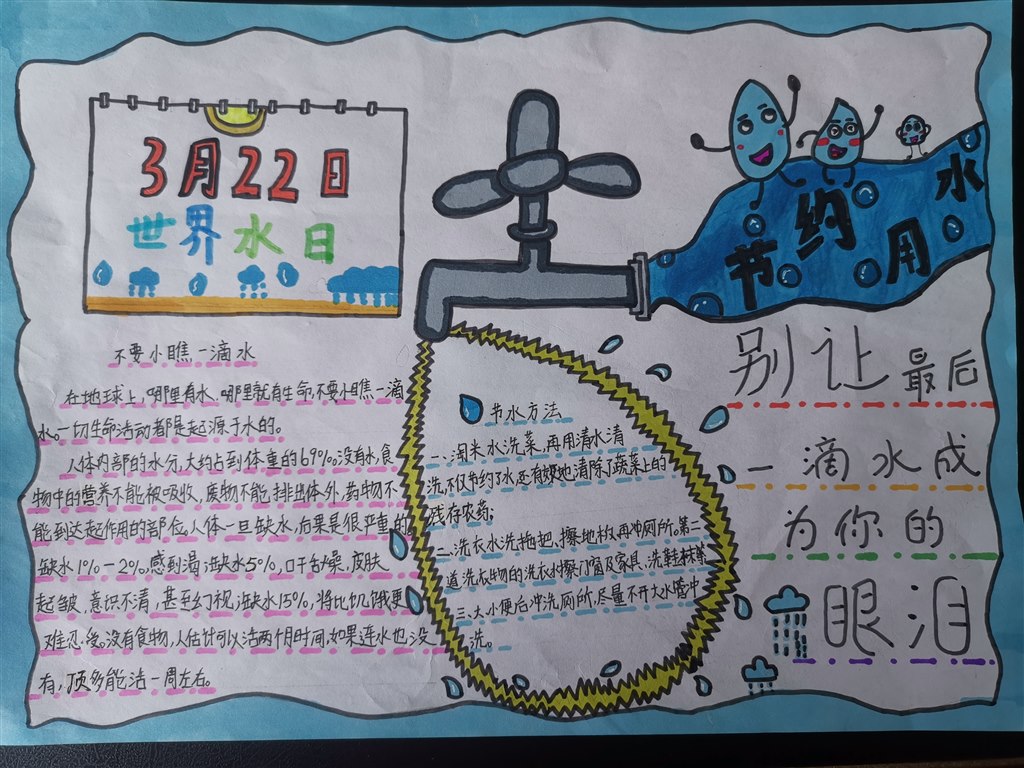 3月22日
世界水日
节约用水
不要小瞧一滴水
在地球上,哪里有水,哪里就有生命,不要小瞧一滴
水。一切生命活动都是起源于水的。
人体内部的水分,大约占到体重的69%。没有水,食
物中的营养不能被吸收,废物不能排出体外,药物不
能到达起作用的部位。人体一旦缺水,后果是很严重的。
缺水1%-2%,感到渴;缺水5%,口干舌燥,皮肤
起皱,意识不清,甚至幻视;缺水15%,将比饥饿更
难忍受。没有食物,人估计可以活两个月时间,如果连水也没
有,顶多能活一周左右。
节水方法
一、淘米水洗菜,再用清水清
洗,不仅节约了水,还有效地清除了蔬菜上的
残存农药;
二、洗衣水洗拖把、擦地板,再冲厕所。第二
道洗衣物的洗衣水擦门窗及家具、洗鞋袜等
三、大小便后冲洗厕所,尽量不开大水管冲
洗。
别让最后
一滴水成
为你的
眼泪